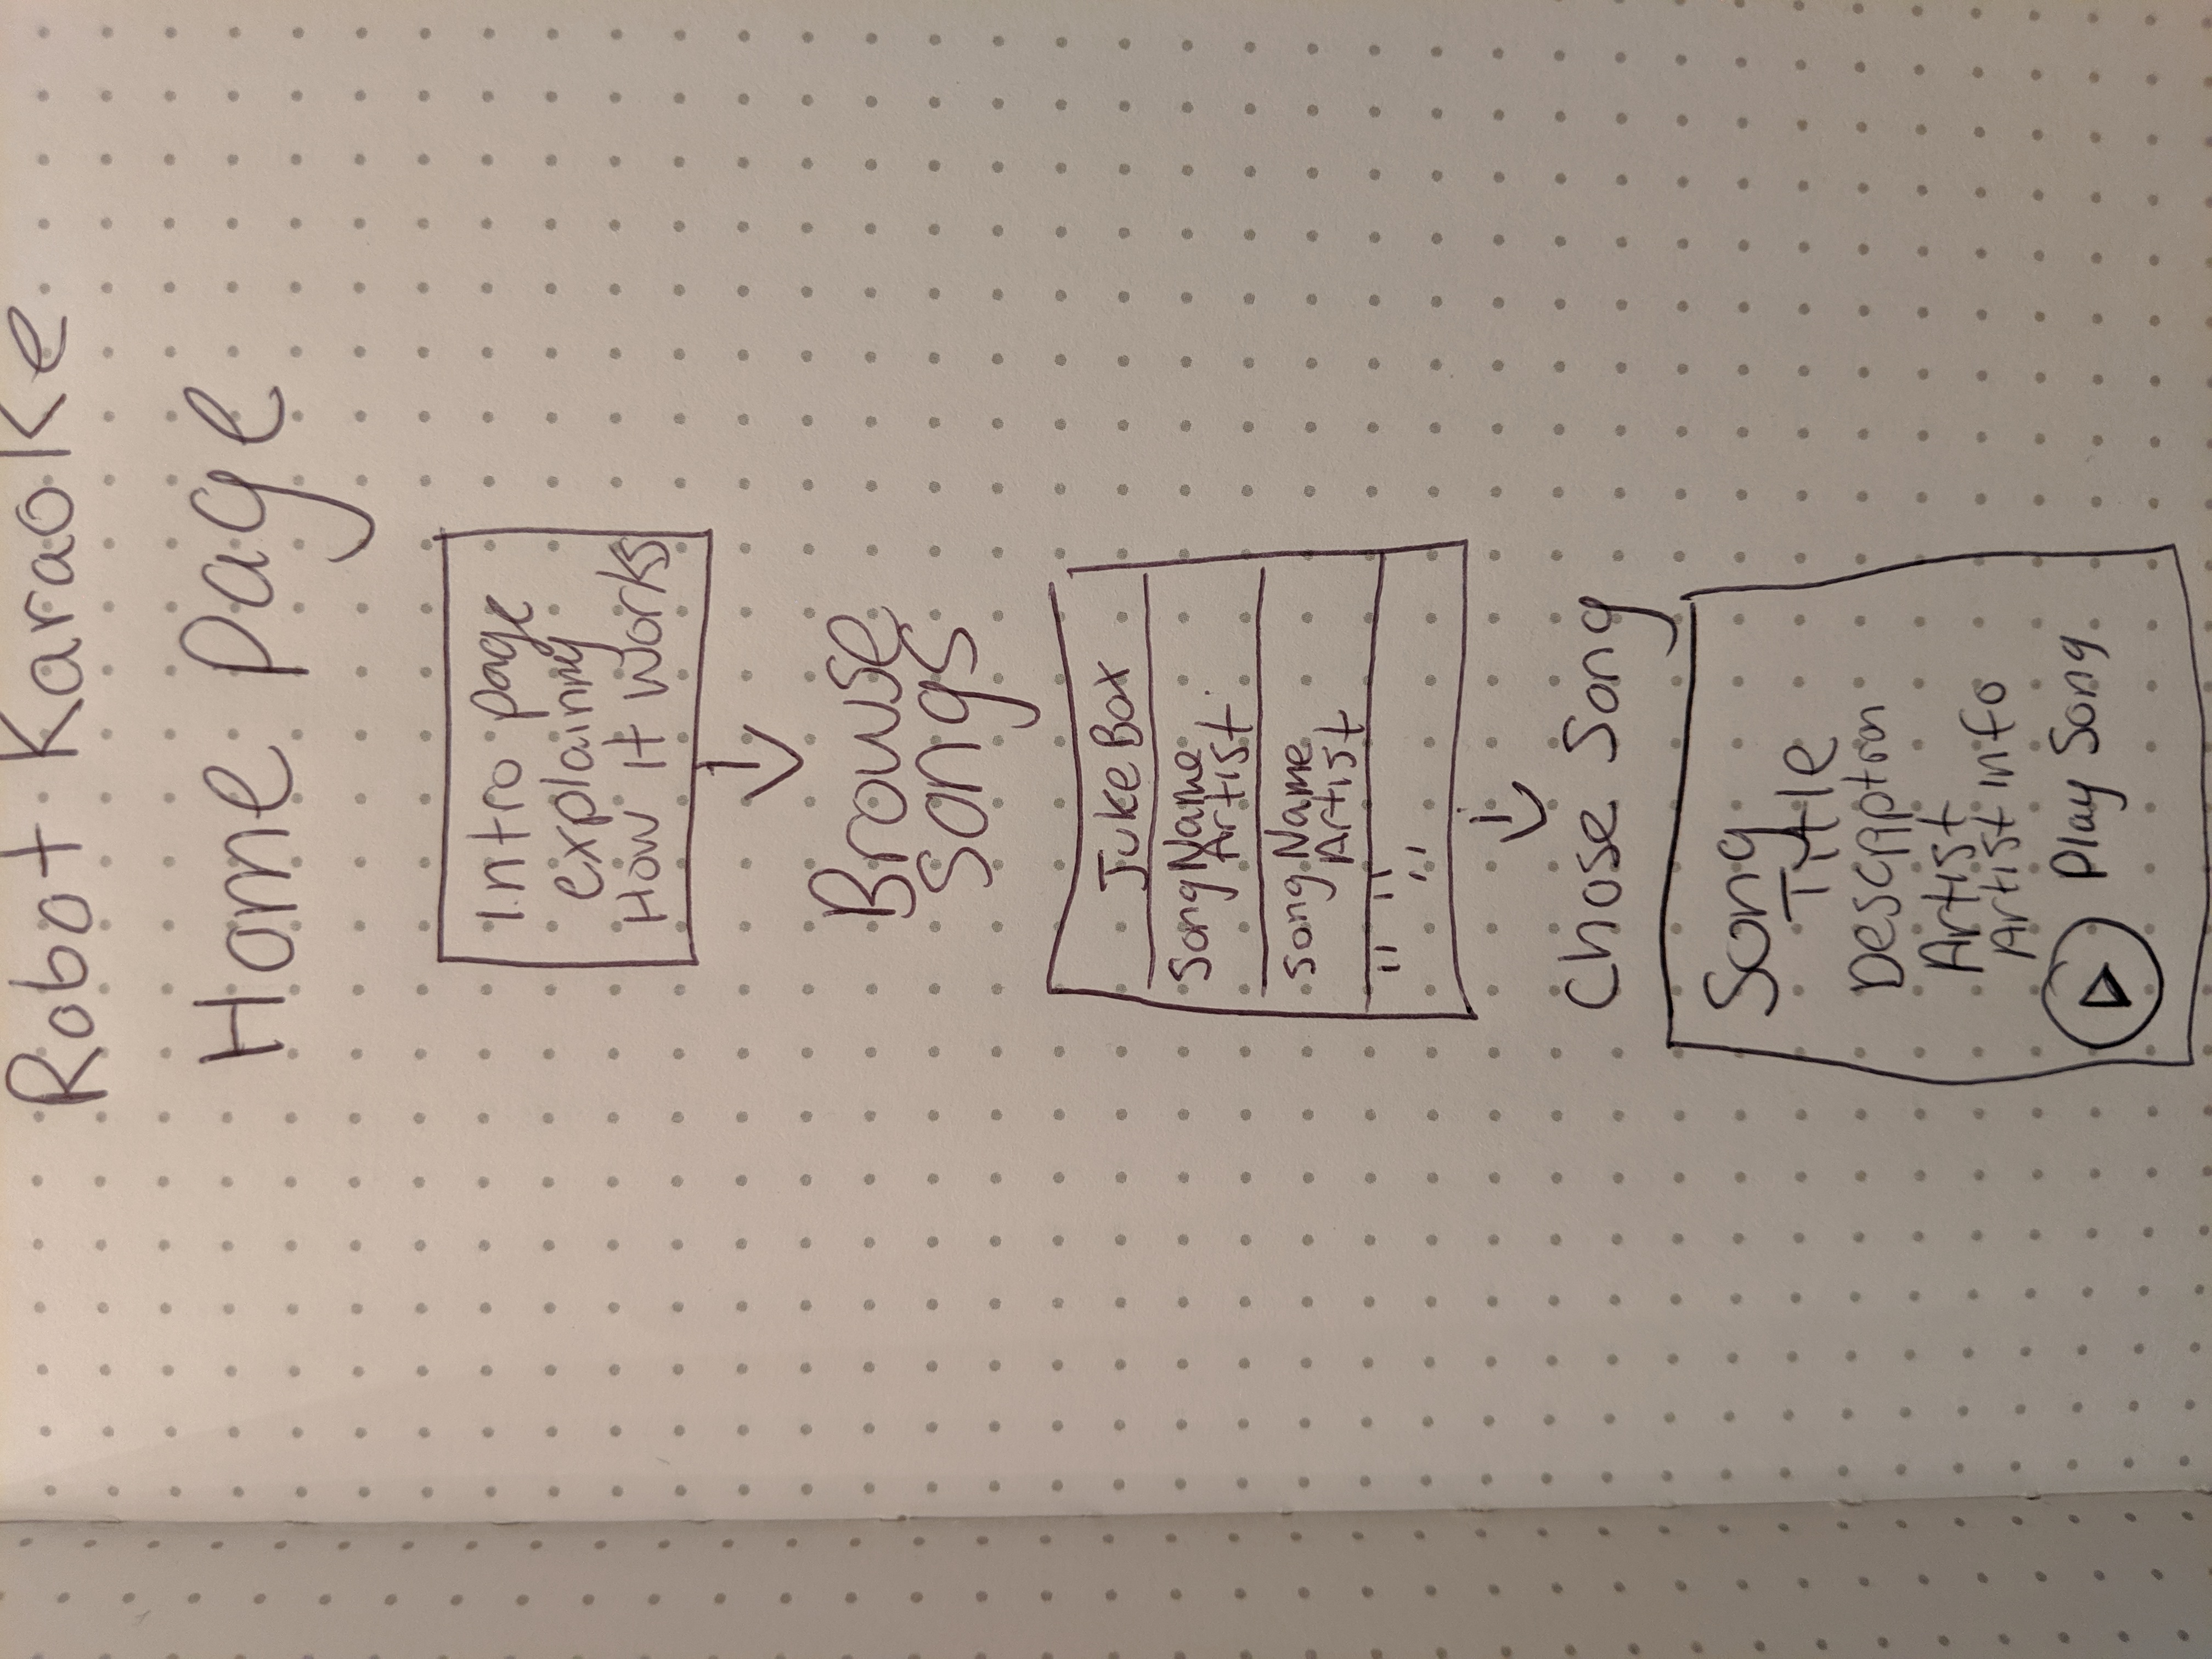 Robot Karaoke
Home page
Intro page
explaining
How it works
Browse
songs
JukeBox
SongName
Artist
songName
Artist
" "
"
Chose Song
Song
Title
Description
Artist
Artist info
Play Song